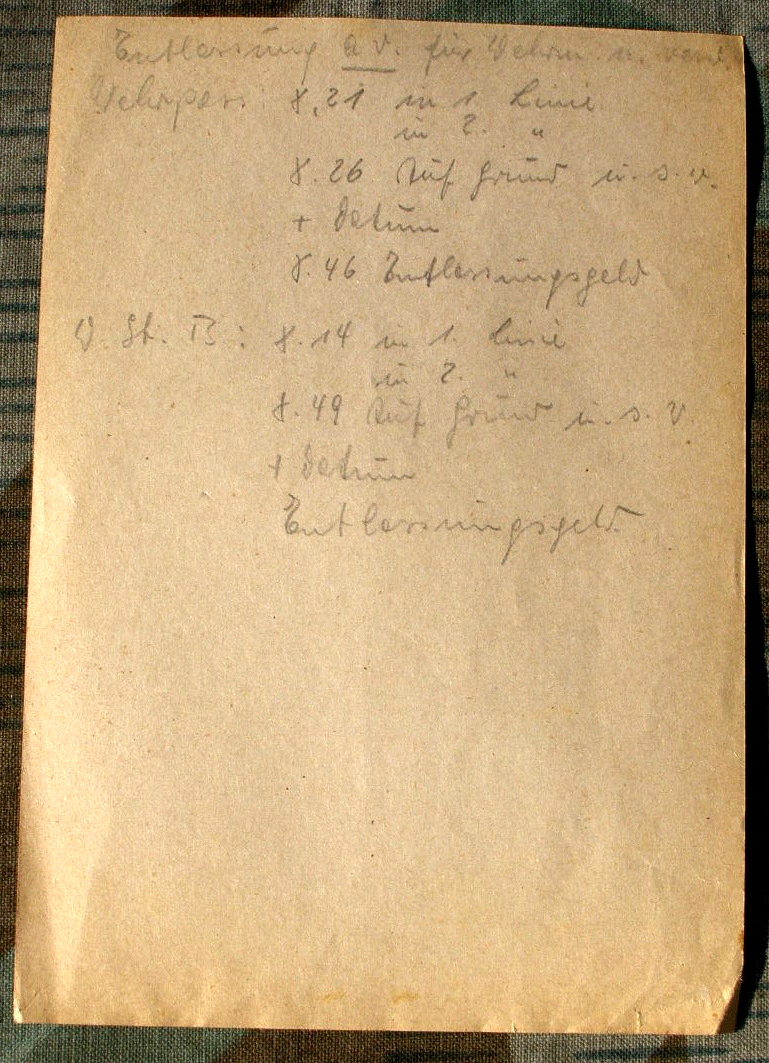 Entlassung a v. für Wehrm u.
Wehrpass: S. 21 in 1. Linie
in 2. "
S. 26 Auf Grund u. s. w.
+ Datum
S. 46 Entlassungsgeld
W. St. B: S. 14 in 1. Linie
in 2. "
S. 49 Auf Grund u. s. w.
+ Datum
Entlassungsgeld